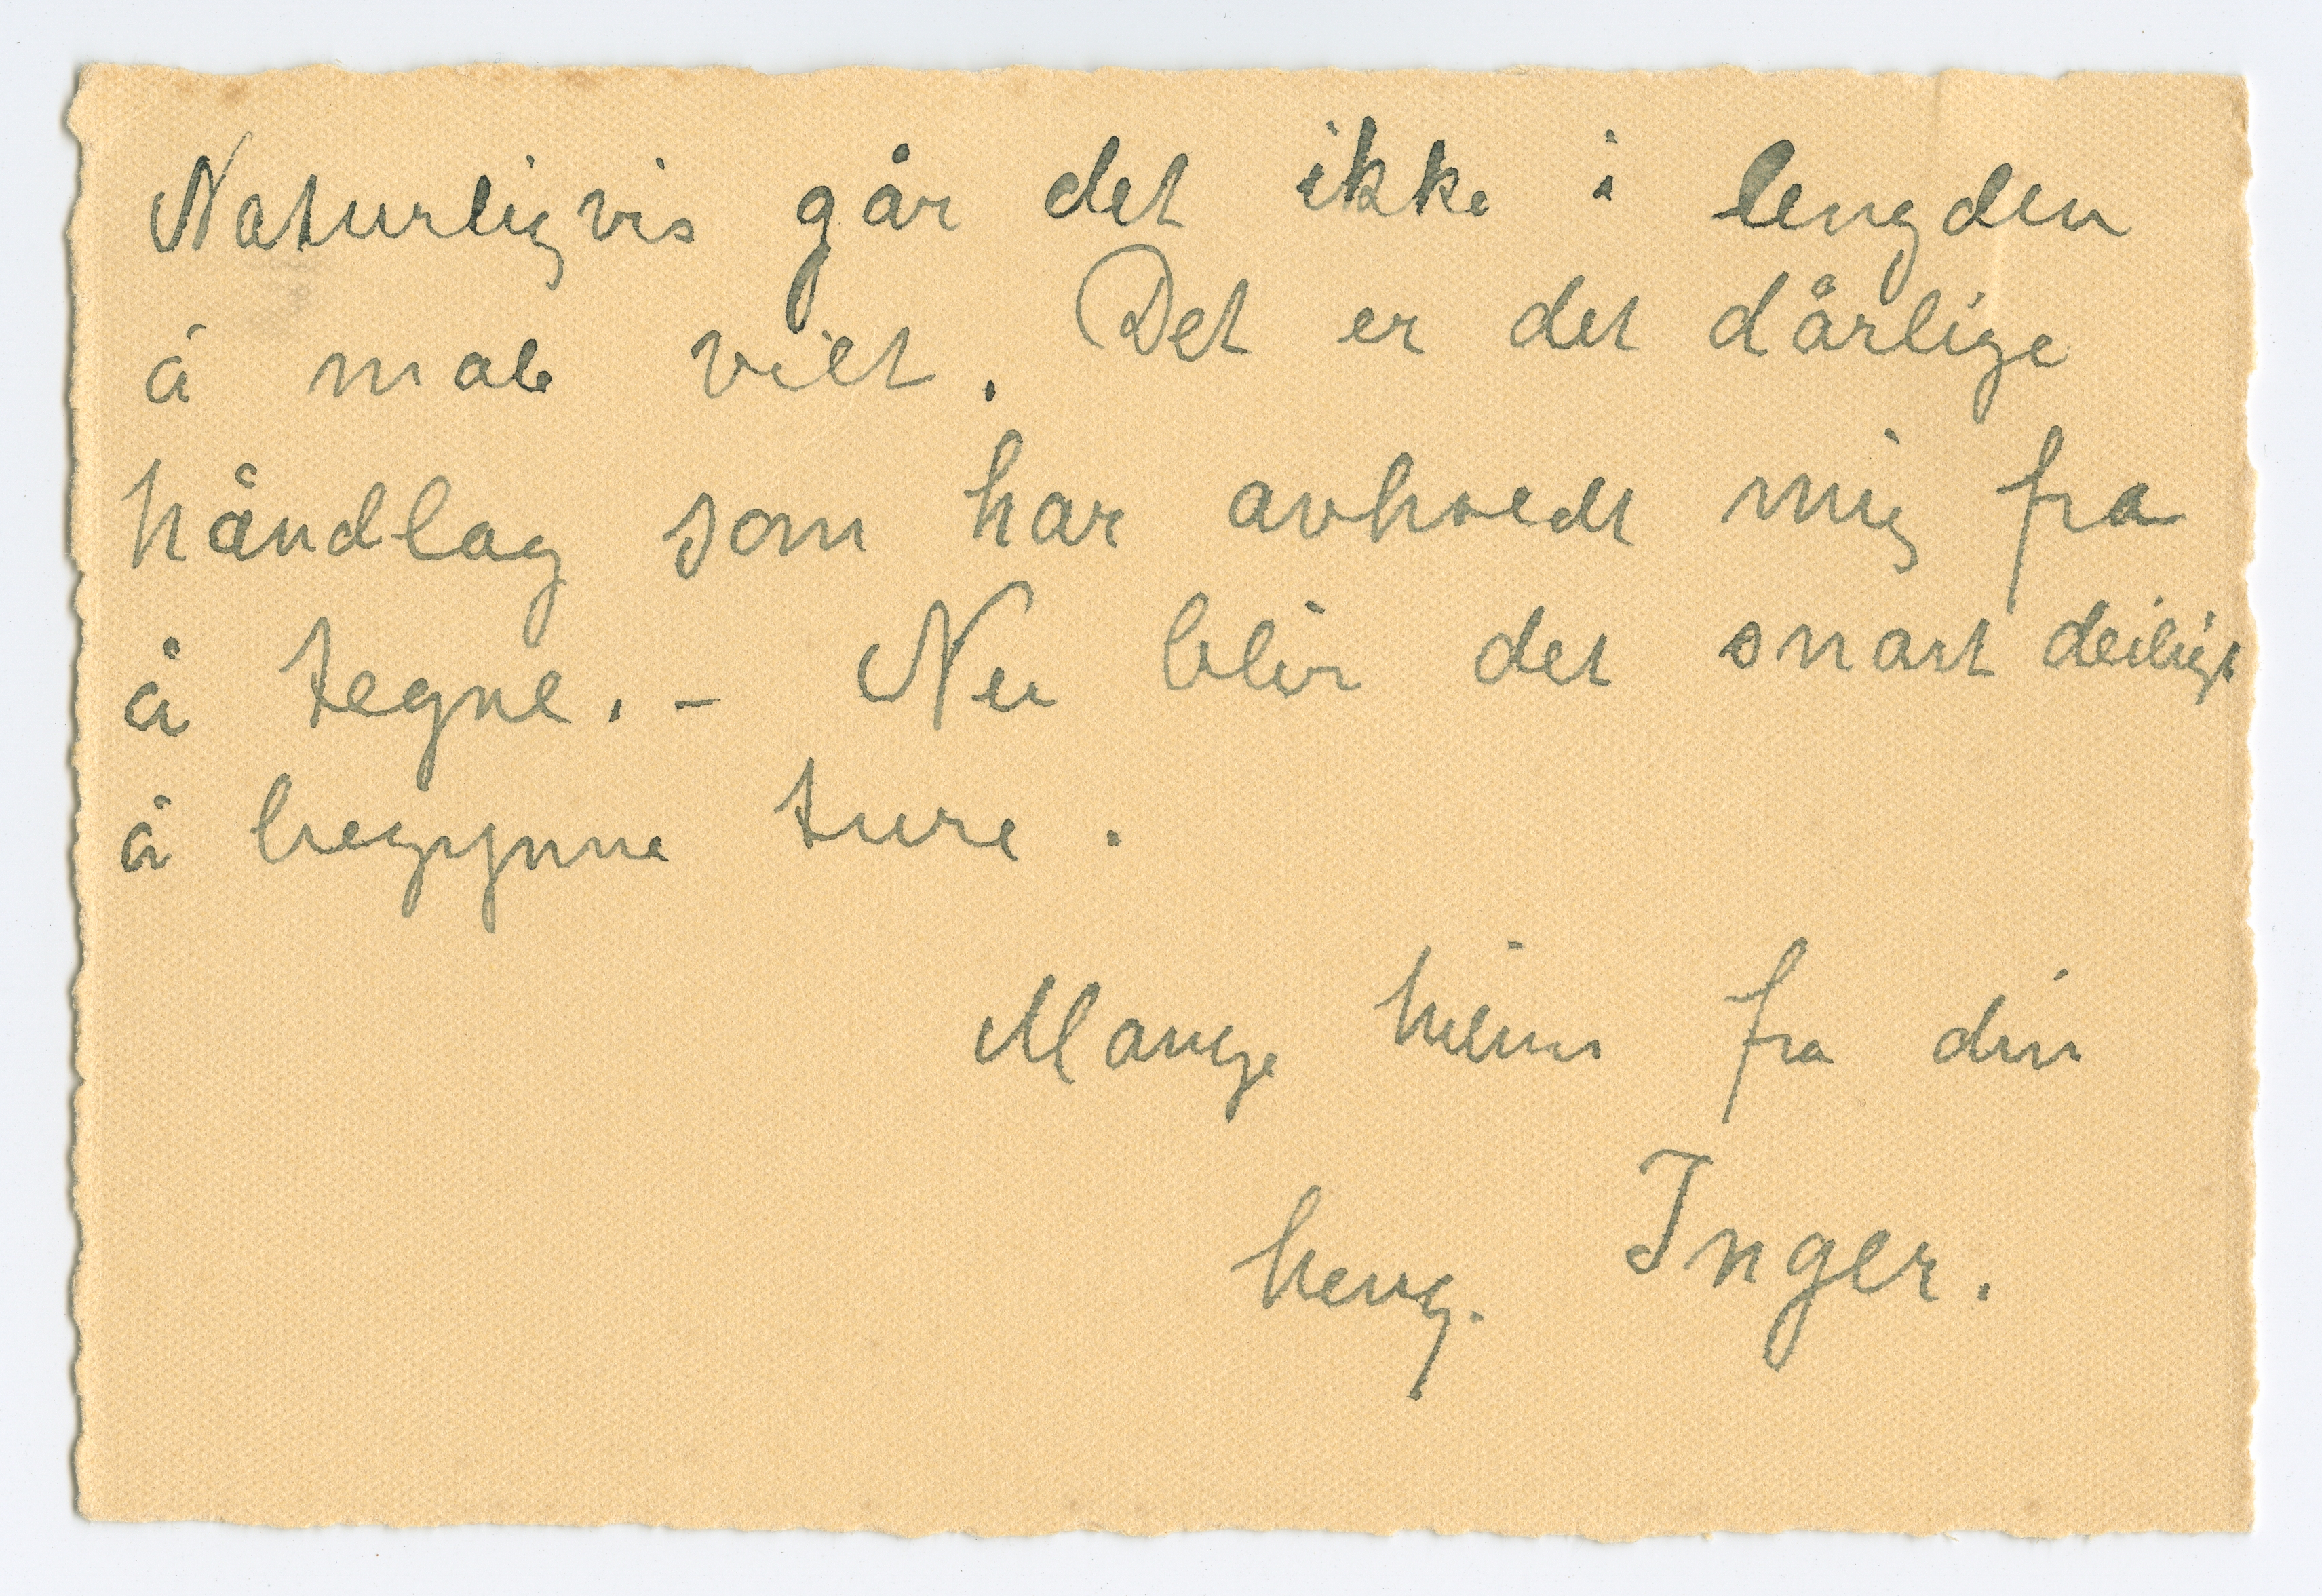 Naturligvis går det ikke i lengden
å male vilt. Det er det dårlige
håndlag som har avholdt mig fra
å tegne. - Nu blir det snart deiligt
å begynne ture.
Mange hilsner fra din
heng. Inger.